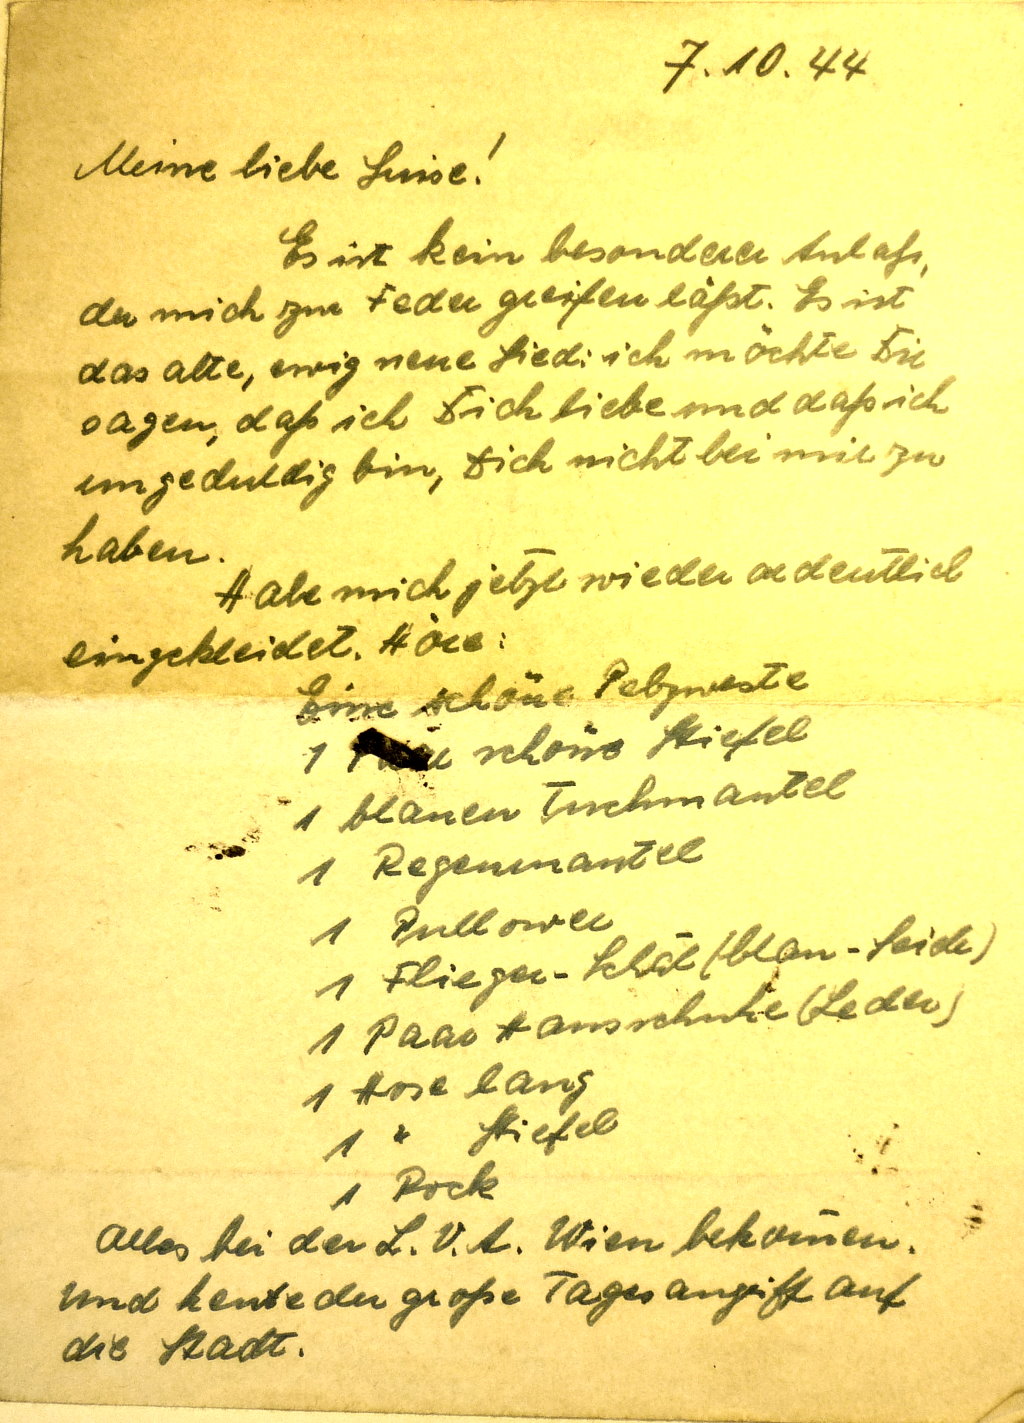 7.10.44
Meine liebe Luise!
Es ist kein besonderer Anlaß,
der mich zur Feder greifen läßt. Es ist
das alte, ewig neue Lied: ich möchte Dir
sagen, daß ich Dich liebe und daß ich
ungeduldig bin, Dich nicht bei mir zu
haben.
Habe mich jetzt wieder ordentlich
eingekleidet. Höre:
Eine schöne Pelzweste
1 Paar schöne Stiefel
1 blauen Tuchmantel
1 Regenmantel
1 Pullower
1 Flieger-Schal (blau-Seide)
1 Paar Hausschuhe (Leder)
1 Hose lang
1 " Stiefel
1 Rock
Alles bei der L.V.A. Wien bekom̄en.
Und heute der große Tagesangriff auf
die Stadt.